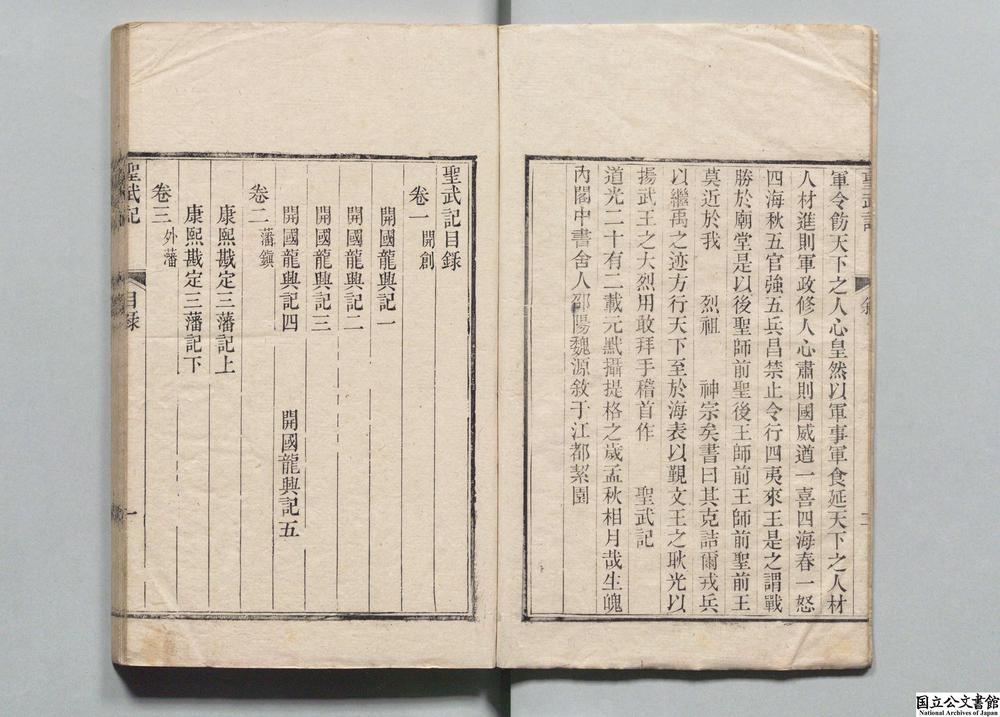 軍令飭天下之人心皇然以軍事軍食延天下之人材
人材進則軍政修人心肅則國威遒一喜四海春一怒
四海秋五官強五兵昌禁止令行四夷來王是之謂戰
勝於廟堂是以後聖師前聖後王師前王師前聖前王
莫近於我 烈祖 神宗矣書曰其克詰爾戎兵
以繼禹之迹方行天下至於海表以覲文王之耿光以
揚武王之大烈用敢拜手稽首作 聖武記
道光二十有二載元黓攝提格之歲孟秋相月哉生魄
內閣中書舍人邵陽魏源敘于江都絜園
聖武記目錄
卷一 開創
開國龍興記一
開國龍興記二
開國龍興記三
開國龍興記四 開國龍興記五
卷二 藩鎮
康熙戡定三藩記上
康熙戡定三藩記下
卷三 外藩
聖武記 目錄 一
国立公文書館
National Archives of Japan